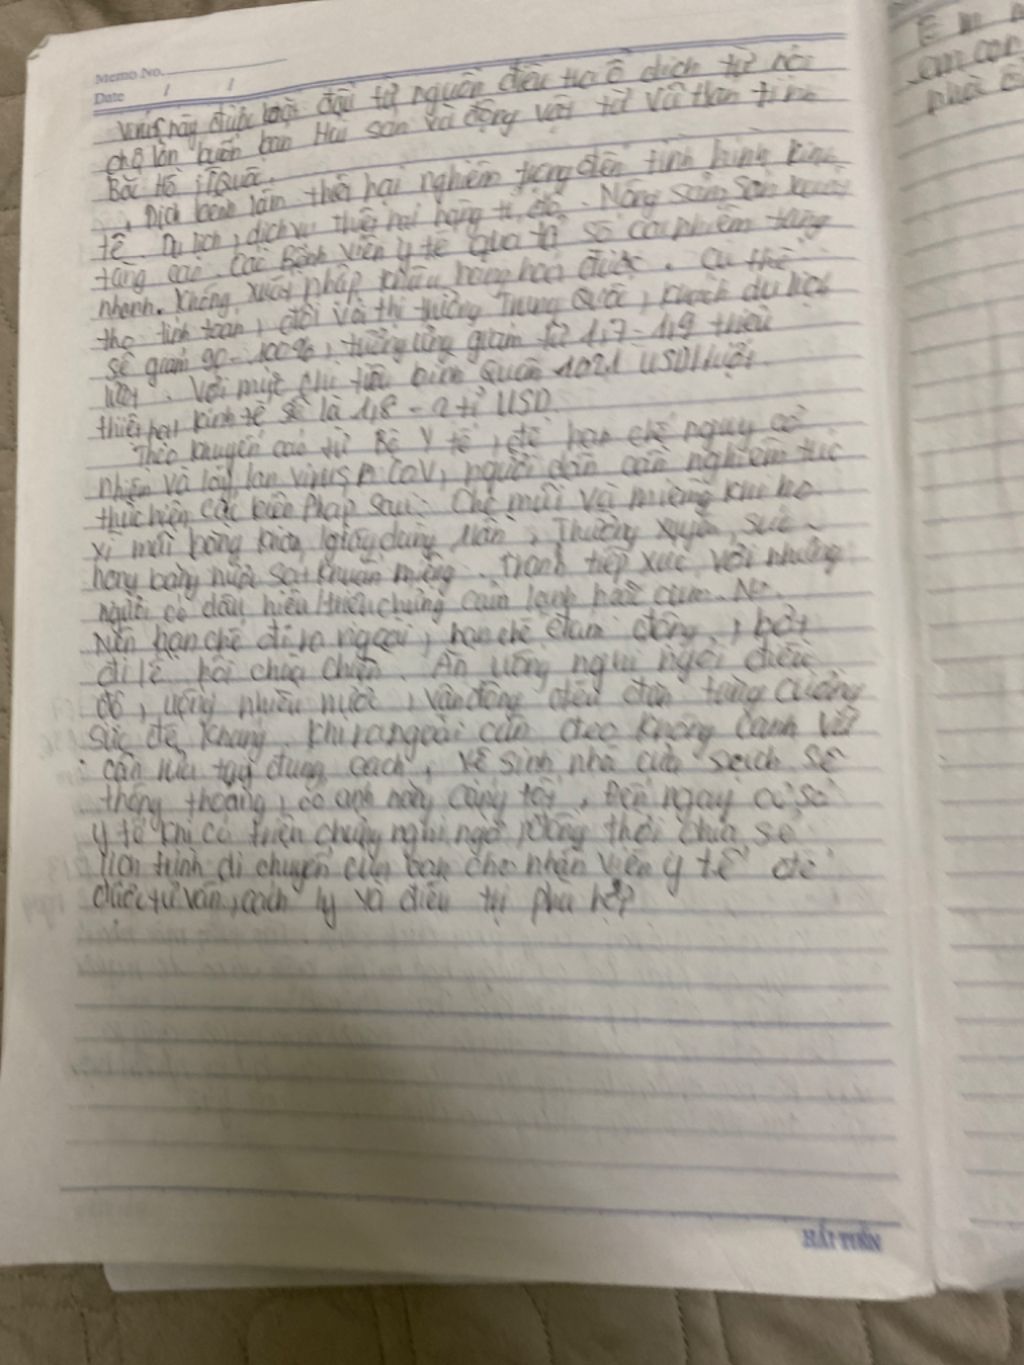 Memo No.
Date / /
Virus này được bắt đầu từ nguồn điều tra ổ dịch từ nơi
chợ lớn buôn bán Hải sản và động vật từ Vũ Hán tỉnh
Bắc Hồ TQuốc.
Dịch bệnh làm thiệt hại nghiêm trọng đến tình hình kinh
tế. Du lịch, dịch vụ thiệt hại hàng tỉ đô. Nông sản sản xuất
tăng cao. Các Bệnh viện y tế quá tải số ca nhiễm tăng
nhanh. Không xuất nhập khẩu hàng hoá được. Cụ thể
thọ tính toán, đối với thị trường Trung Quốc, khách du lịch
sẽ giảm 90-100%, tương ứng giảm từ 1,7-1,9 triệu
lượt. Với mức chi tiêu bình quân 1021 USD/lượt.
thiệt hại kinh tế sẽ là 1,8 - 2 tỉ USD.
Theo khuyến cáo từ Bộ Y tế, để hạn chế nguy cơ
nhiễm và lây lan virus n CoV, người dân cần nghiêm túc
thực hiện các biện pháp sau: Che mũi và miệng khi ho
xì mũi bằng khăn, giấy dùng 1 lần, Thường xuyên, súc
họng bằng nước sát khuẩn miệng. Tránh tiếp xúc với những
người có dấu hiệu/triệu chứng cảm lạnh hoặc cúm.
Nên hạn chế đi ra ngoài, hạn chế đám đông, bớt
đi lễ hội chùa chiền. Ăn uống nghỉ ngơi điều
độ, uống nhiều nước, vận động đều đặn tăng cường
sức đề kháng. Khi ra ngoài cần đeo không canh và
cần rửa tay đúng cách, vệ sinh nhà cửa sạch sẽ
thông thoáng, có ánh nắng càng tốt. Đến ngay cơ sở
y tế khi có triệu chứng nghi ngờ, đồng thời chia sẻ
lịch trình di chuyển của bạn cho nhân viên y tế để
được tư vấn, cách ly và điều trị phù hợp
HẢI TIẾN